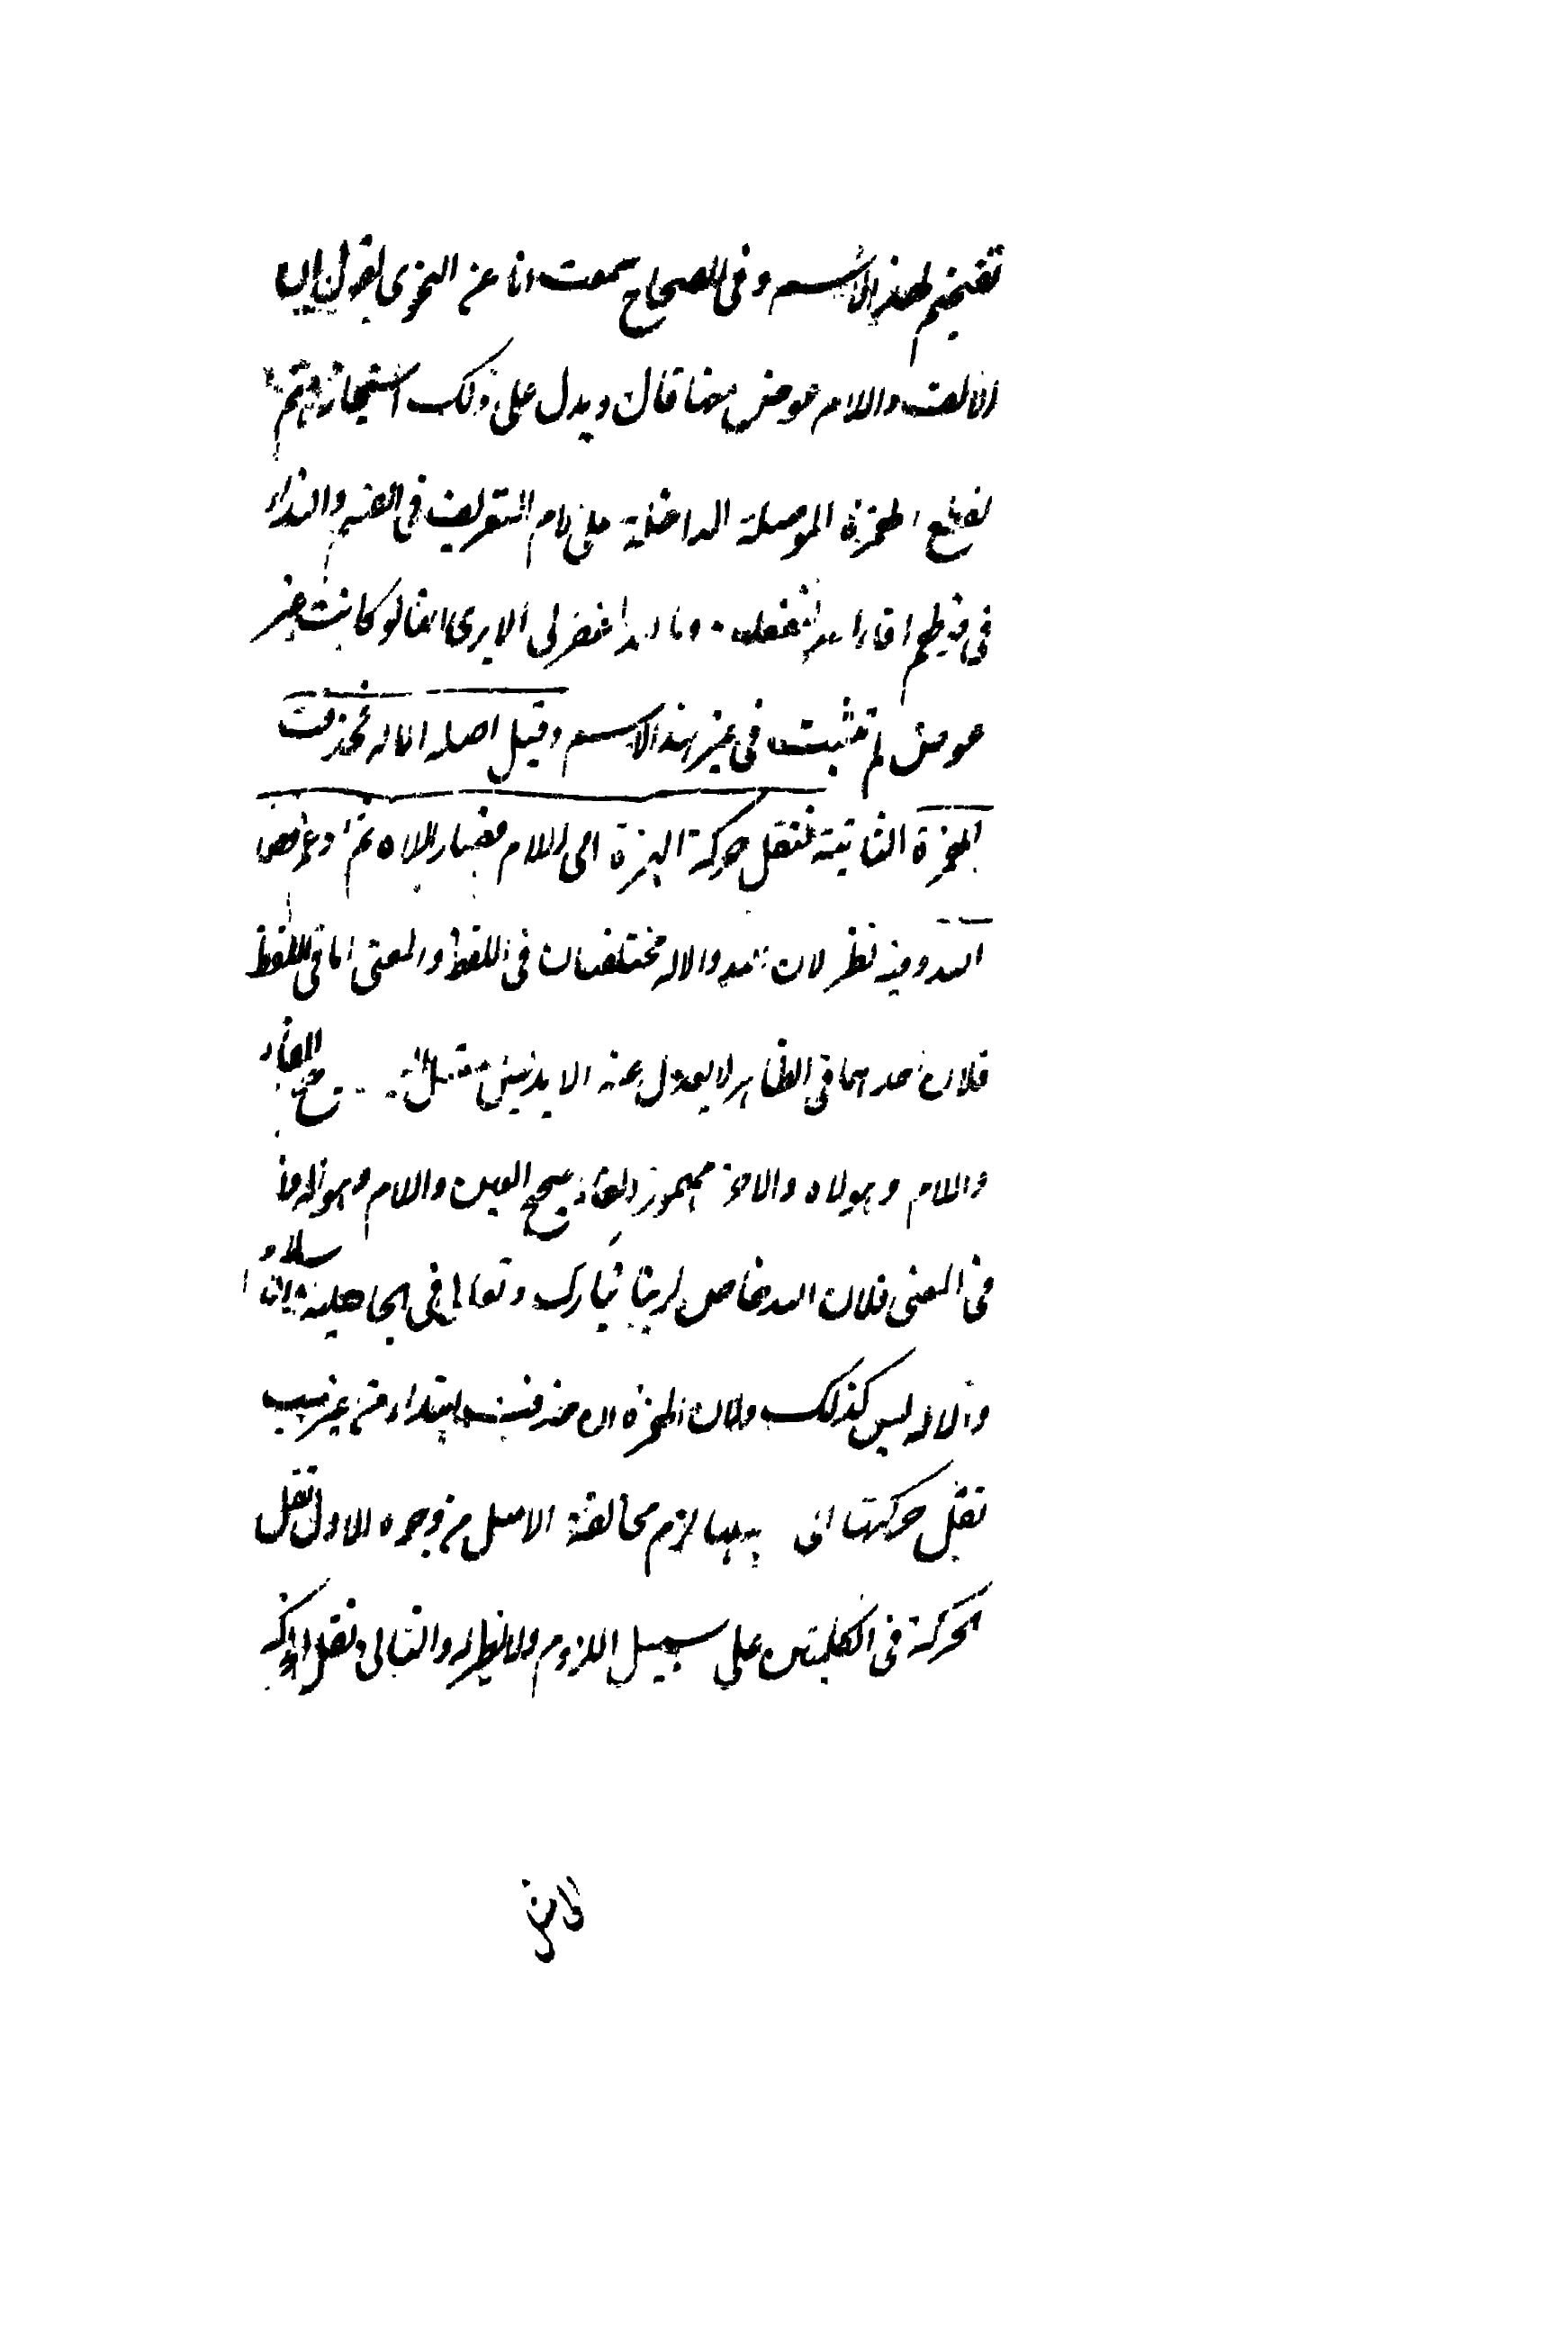 تفخيم لهذا الاسم وفي الصحاح سمعت انا عن النحوي يقول ان
الالف واللام عوض منها قال ويدل على ذلك استجازتهم
لقطع الهمزة الموصلة الداخلة على لام التعريف في القسم والنداء
في قولهم افالله لتفعلن وياالله اغفر لي الا يرى انها لو كانت غير
عوض لم تثبت في غير هذا الاسم وقيل اصله الاله فحذفت
الهمزة الثانية فنقل حركة الهمزة الى اللام فصار اللاه ثم ادغم فصار
الله وفيه نظر لان الله والاله مختلفان في اللفظ والمعنى اما في اللفظ
فلان احدهما في الظاهر لا يعدل عنه الا بدليل معتل صحيح الفاء
واللام وهو لاه والاخر مهموز الفاء صحيح العين واللام وهو اله واما
في المعنى فلان الله خاص لربنا تبارك وتعالى في الجاهلية والاسلام
والاله ليس كذلك ولان الهمزة ان حذفت ابتداء من غير سبب
نقل حركتها الى لزم مخالفة الاصل من وجوه الاول نقل
الحركة في الكلمتين على سبيل اللزوم ولا نظير له والثاني نقل حركة